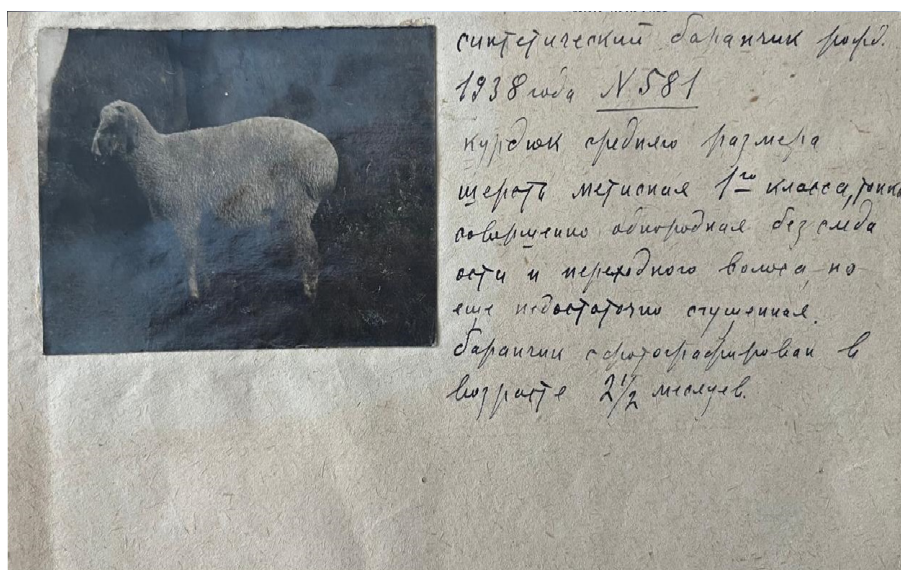 синтетический баранчик рожд.
1938 года N 581
курдюк среднего размера
шерсть метисная 1го класса, тонка
совершенно однородная без следа
ости и переходного волоса, но
еще недостаточно сгущенная.
баранчик сфотографирован в
возрасте 2 1/2 месяцев.